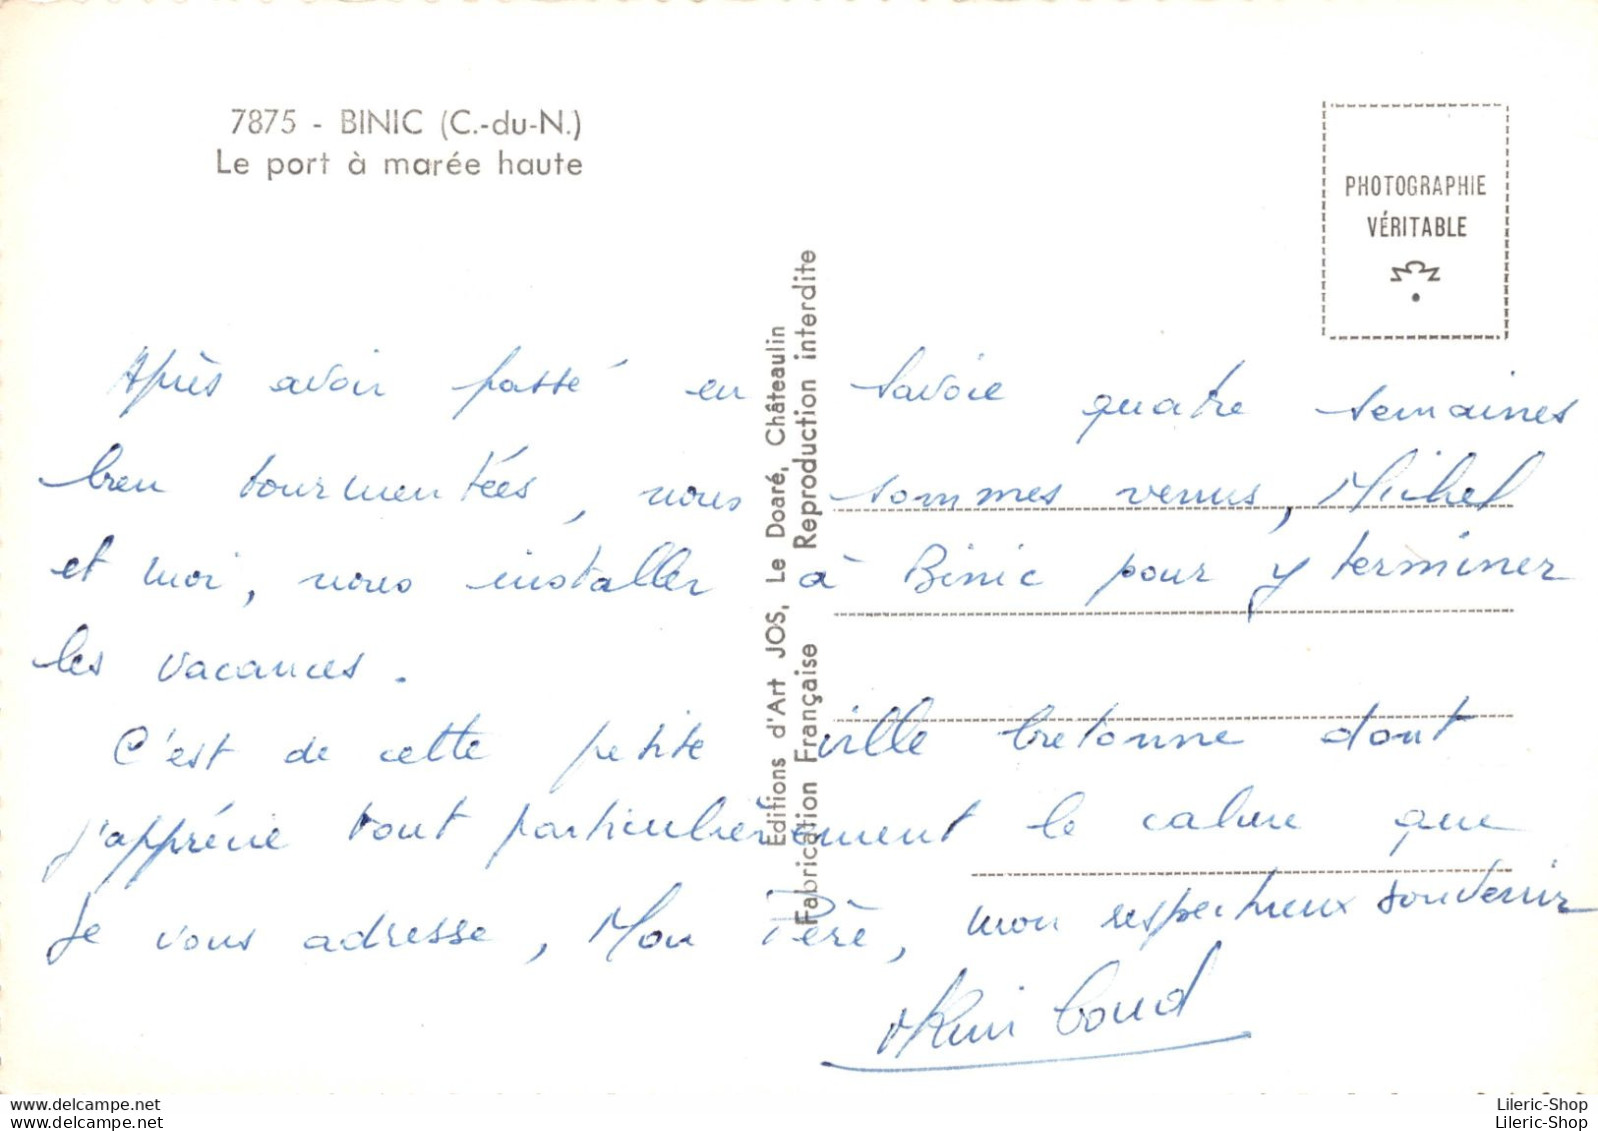 7875 - BINIC (C.-du-N.)
Le port à marée haute
PHOTOGRAPHIE
VÉRITABLE
Editions d'Art JOS, Le Doaré, Châteaulin
Fabrication Française Reproduction interdite
Après avoir passé en Savoie quatre semaines
bien tourmentées, nous sommes venus, Michel
et moi, nous installer à Binic pour y terminer
les vacances.
C'est de cette petite ville bretonne dont
j'apprécie tout particulièrement le calme que
je vous adresse, Mon Père, mon respectueux souvenir
Lileric-Shop
Lileric-Shop
Lileric-Shop
Lileric-Shop